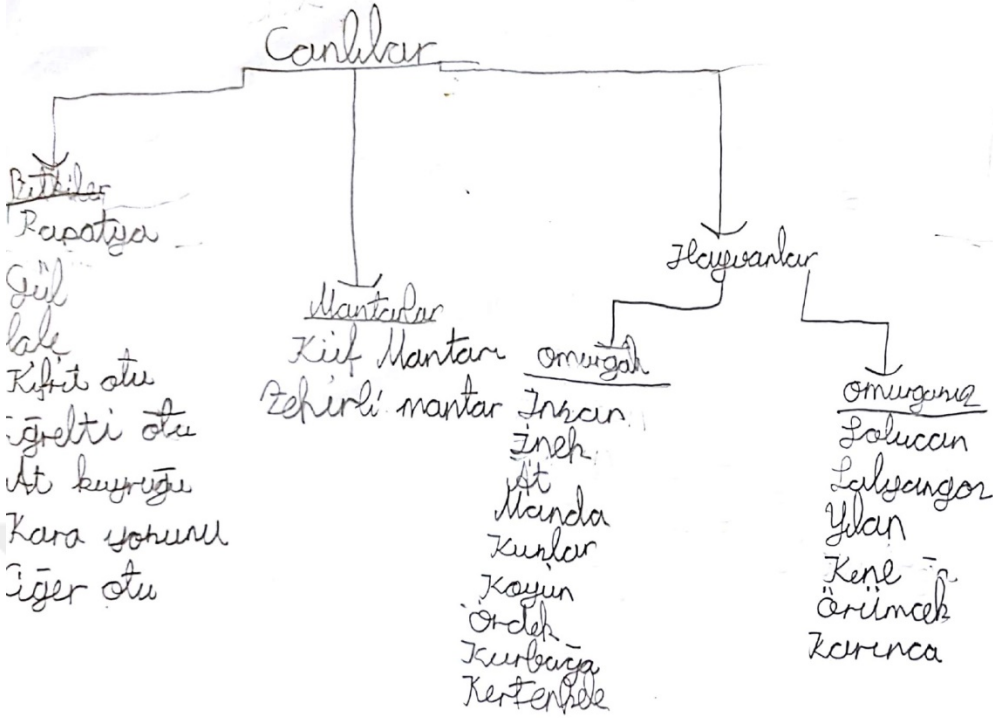 Canlılar
Bitkiler
Papatya
Gül
lale
Kibrit otu
Eğrelti otu
At kuyruğu
Kara yosunu
Ciğer otu
Mantarlar
Küf Mantarı
Zehirli mantar
Hayvanlar
omurgalı
İnsan
İnek
At
Manda
Kuşlar
Koyun
Ördek
Kurbağa
Kertenkele
omurgasız
Solucan
Salyangoz
Yılan
Kene
Örümcek
Karınca